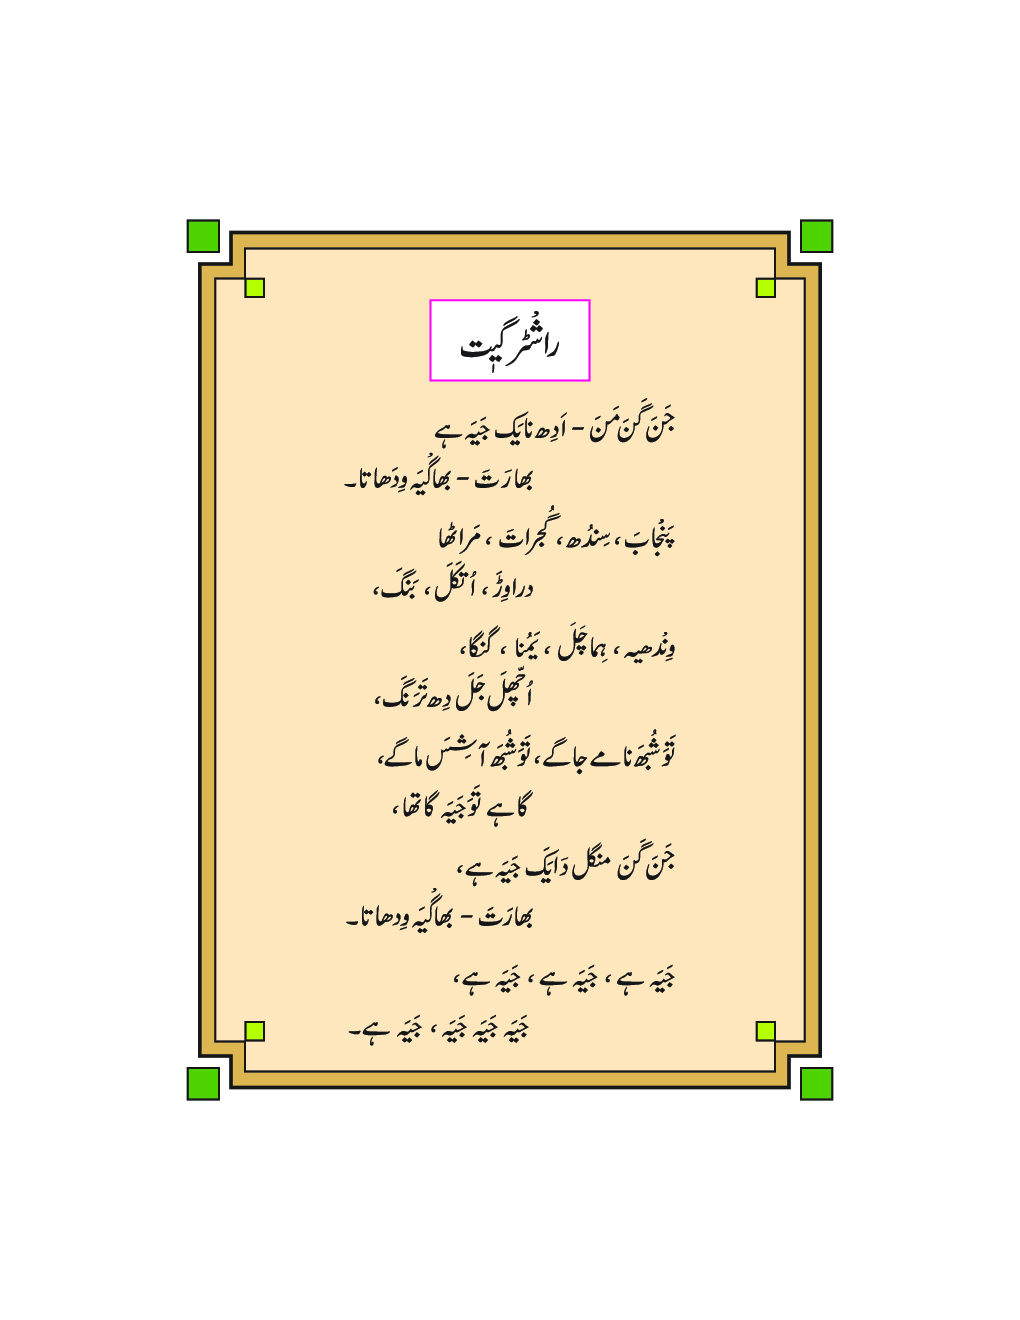 راشٹرگیت
جَنَ گَنَ مَنَ – اَدِھ نایَک جَیَہ ہے
بھارَتَ – بھاگیَہ وِدَھاتا۔
پَنْجابَ، سِندُھ، گُجراتَ ، مَراٹھا
دراوِڑَ ، اُتکَلَ ، بَنگَ،
وِنْدھیہ ، ہِماچَلَ ، یَمُنا ، گنگا،
اُچّھلَ جَلَ دِھ تَرَنگَ،
تَوَ شُبھَ نامے جاگے، تَوَ شُبھَ آشِسَ ماگے،
گاہے تَوَ جَیَہ گاتھا،
جَنَ گَنَ منگل دَایَکَ جَیَہ ہے،
بھارَتَ – بھاگیَہ وِدھاتا۔
جَیَہ ہے ، جَیَہ ہے ، جَیَہ ہے،
جَیَہ جَیَہ جَیَہ ، جَیَہ ہے۔